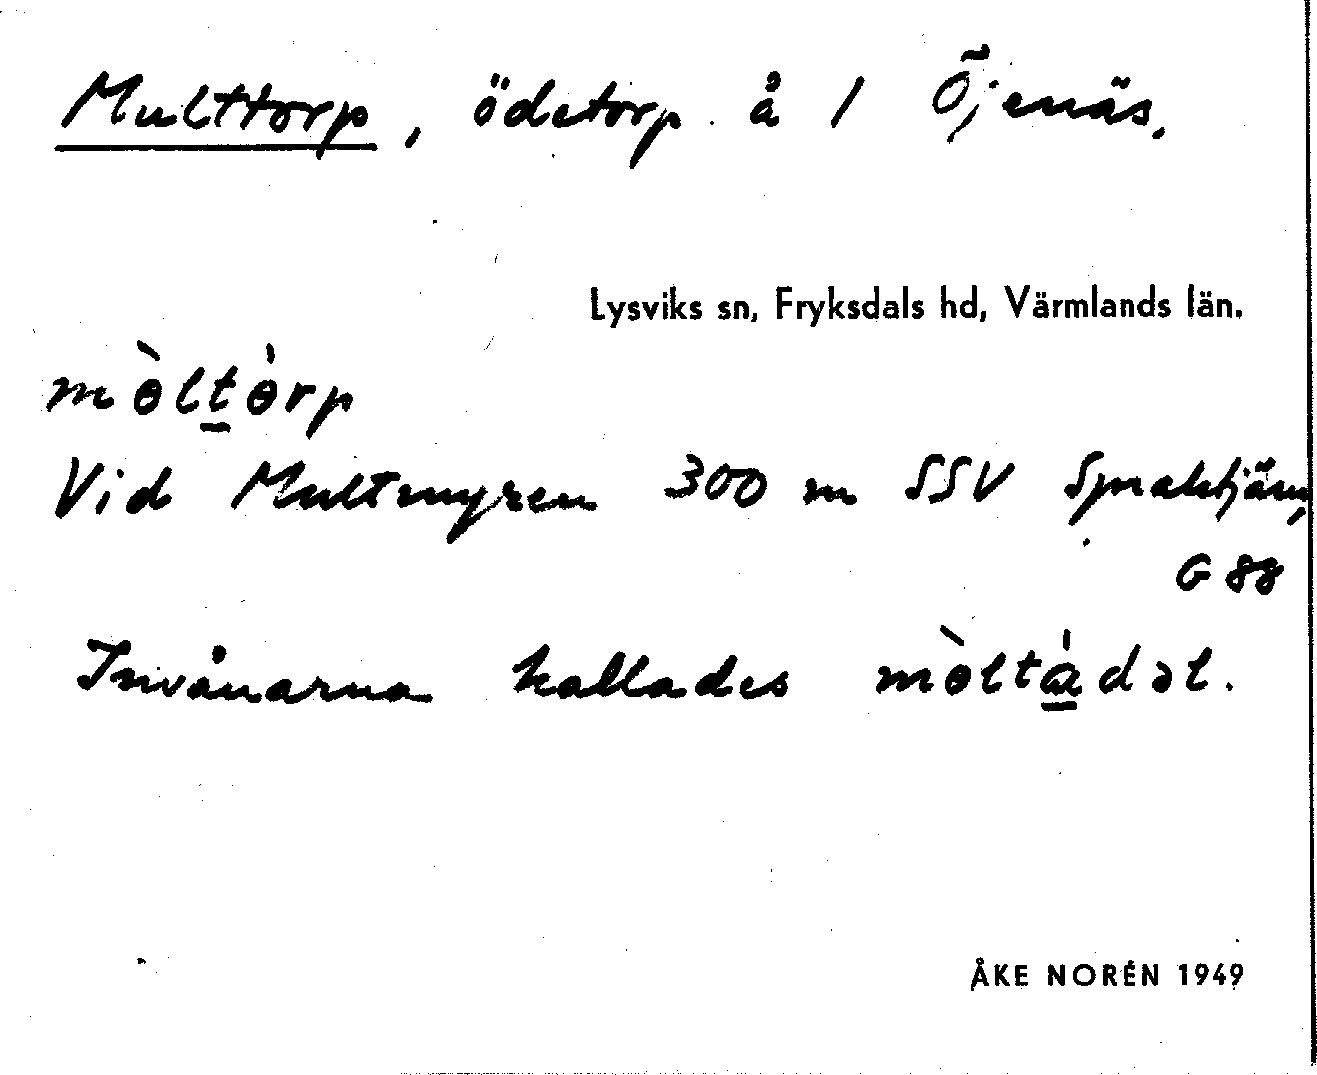 Multtorp, ödetorp å 1 Öjenäs.
Lysviks sn, Fryksdals hd, Värmlands län.
mɵ̀ltɵ̀rp
Vid Multmyren 300 m SSV Spraktjärn,
G 88
Invånarna kallades mɵ̀ltàdəl.
ÅKE NORÉN 1949